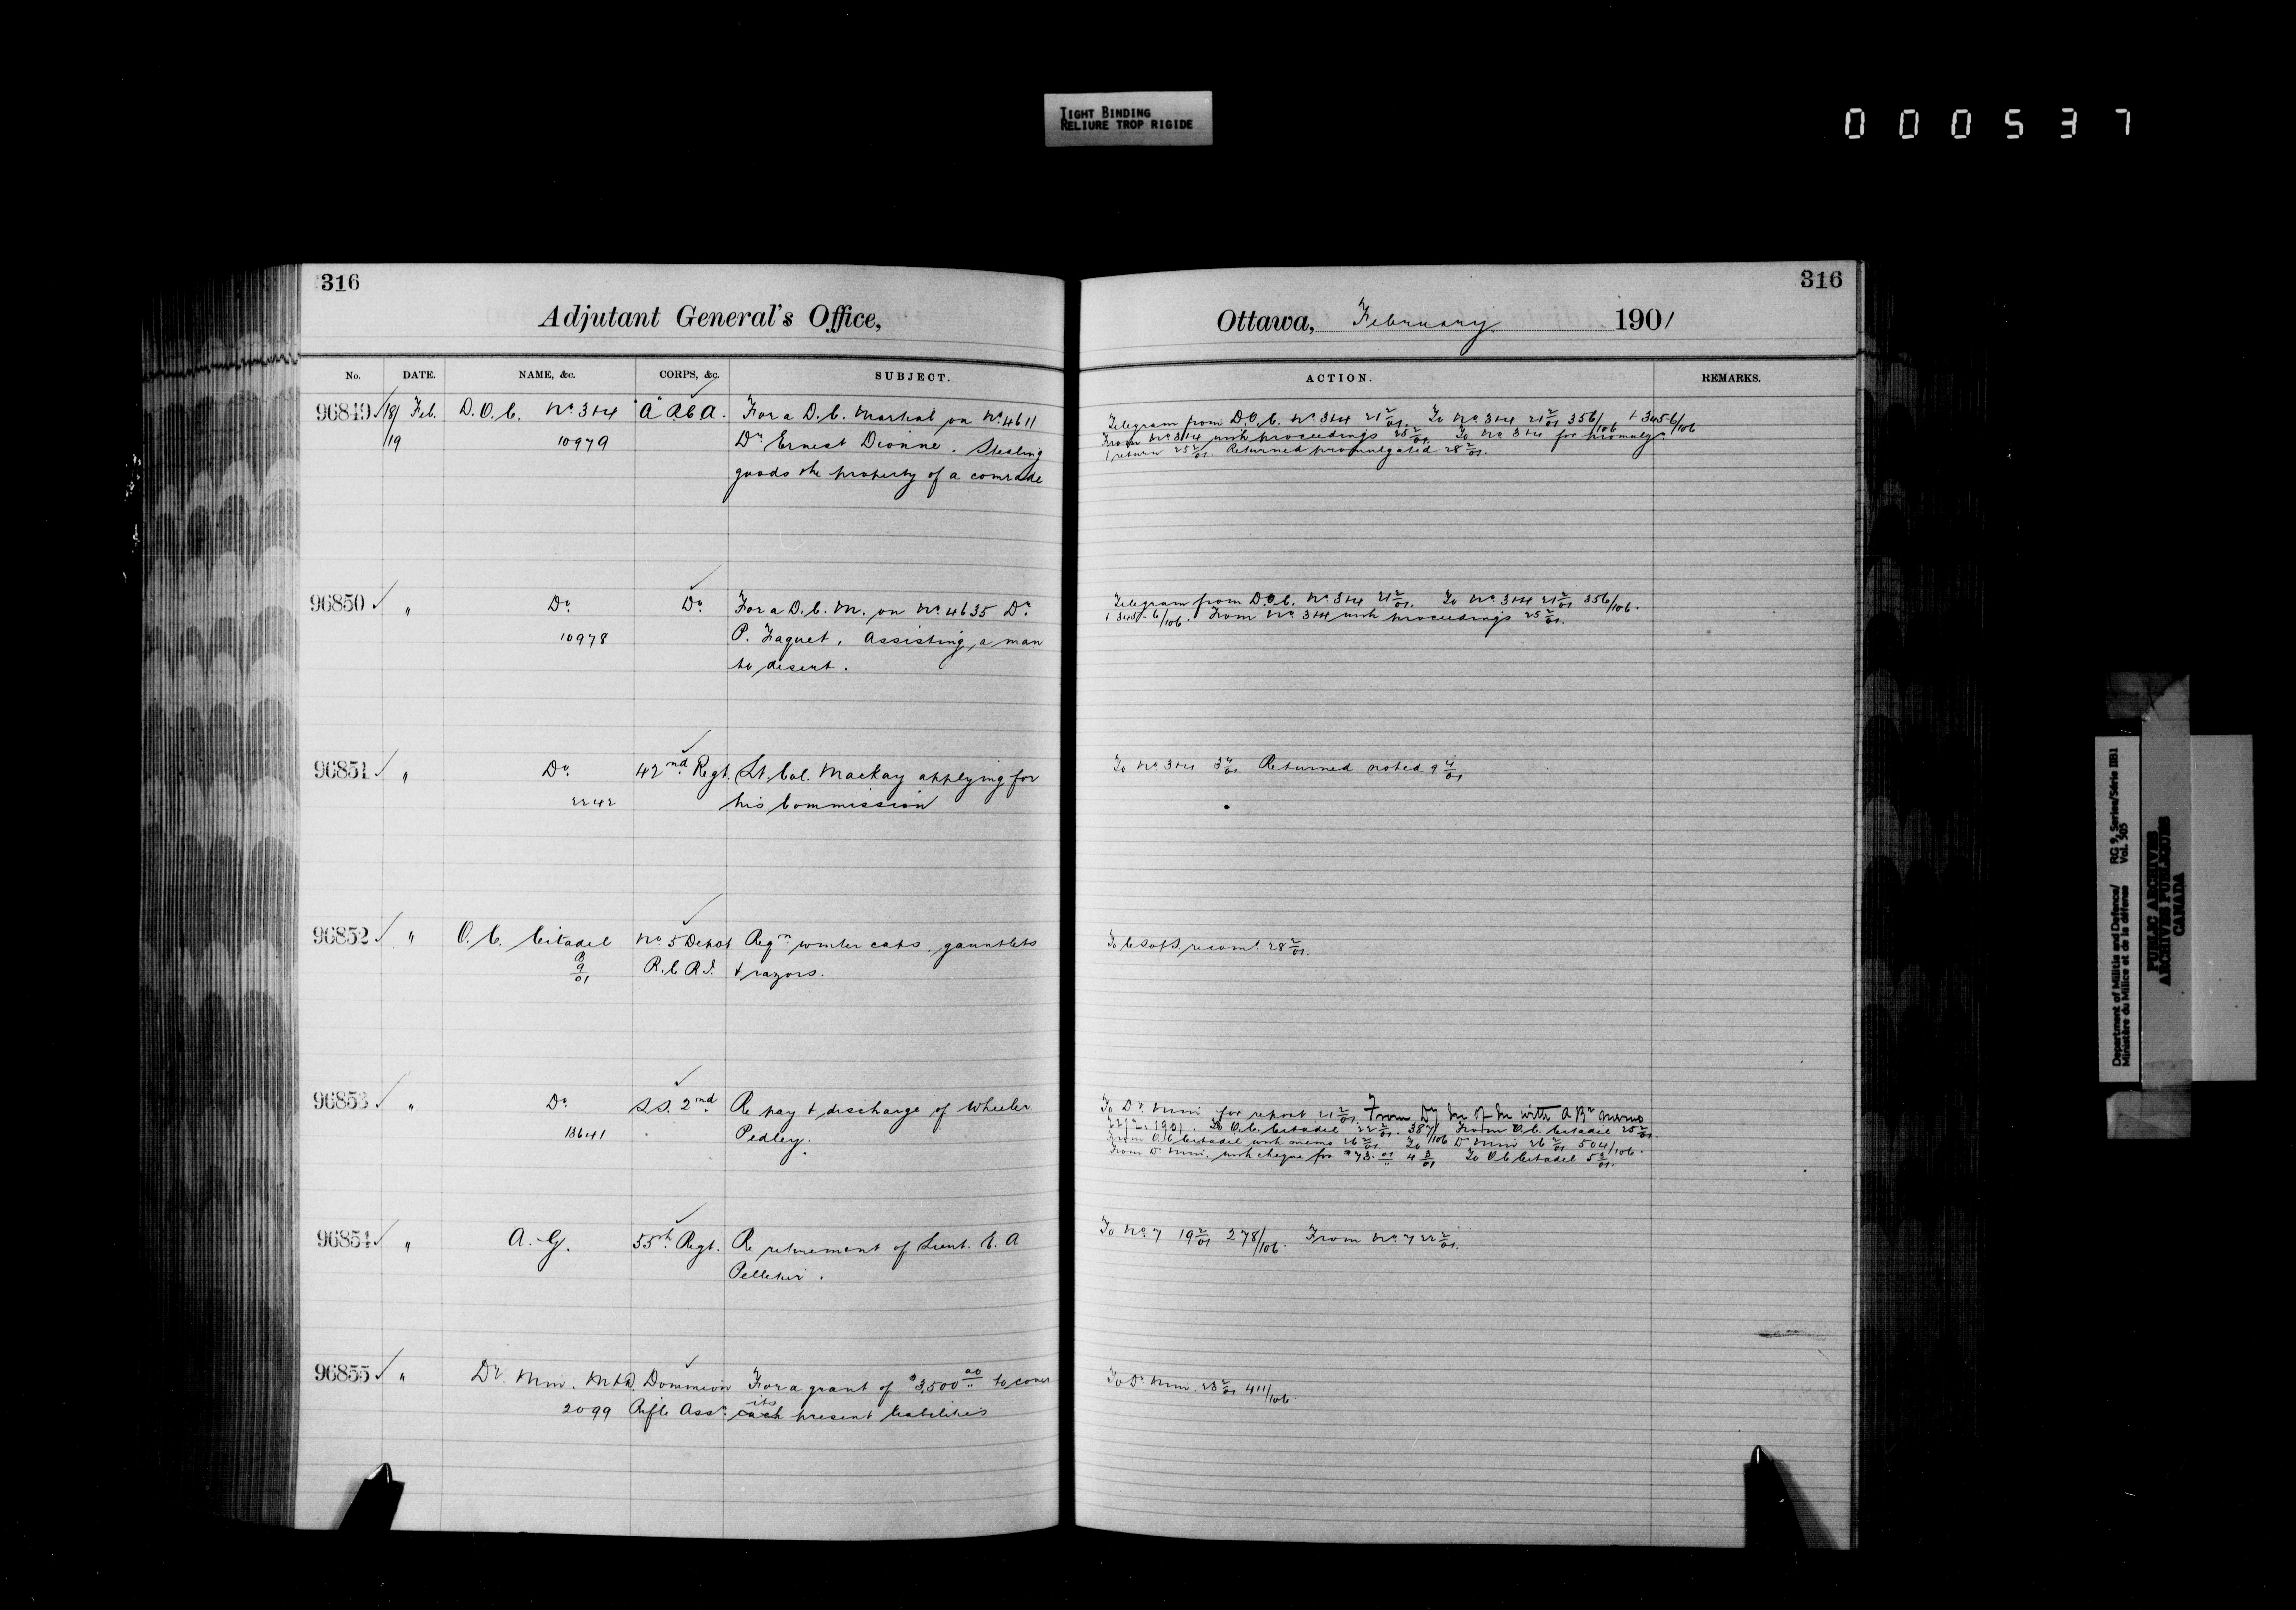 TIGHT BINDING
RELIURE TROP RIGIDE
000537
316
Adjutant General's Office,
No. DATE. NAME, &c. CORPS, &c. SUBJECT.
96849 18/19 Feb. D.O.C. No 3+4 "A" R.C.A. For a D.C. Martial on No. 4611
10979 Dr. Ernest Dionne. Stealing
goods the property of a comrade
96850 " Do. Do. For a D.C.M. on No. 4635 Dr.
10978 P. Faquet, Assisting a man
to desert.
96851 " Do. 42nd Regt. Lt. Col. Mackay applying for
2242 his Commission
96852 " O.C. Citadel No. 5 Depot Reqn. winter caps, gauntlets
R 9/01 R.C.R.I. + razors.
96853 " Do. S.S. 2nd Re pay + discharge of Wheeler
13641 Pedley.
96854 " A.G. 55th Regt. Re retirement of Lieut. C. A
Pelletier.
96855 " Dy. Min. M+D. Dominion For a grant of $3,500 00 to cover
2099 Rifle Assn. cash its present liabilities
316
Ottawa, February 1901
ACTION. REMARKS.
Telegram from D.O.C. No 3+4 21 2/01. To No 3+4 21 2/01 356/106 + 3456/106
From No 3+4 with proceedings 25 2/01. To No 3+4 for promulg.
+ return 25 2/01. Returned promulgated 28 2/01.
Telegram from D.O.C. No 3+4 21 2/01. To No 3+4 21 2/01 356/106.
+ 345-6/106. From No 3+4 with proceedings 25 2/01.
To No 3+4 3 4/01 Returned noted 9 4/01
To C S of S. recomd. 28 2/01.
To Dy. Min for report 21 2/01. From Dy M of M with A Br memo
22/2/1901. To O.C. Citadel 22 2/01. 387/106 From O.C. Citadel 25 2/01.
From O.C. Citadel with memo 26 2/01. To Dy. Min 26 2/01 504/106.
From Dy. Min. with cheque for $73. 4 3/01 To O.C. Citadel 5 3/01.
To No. 7 19 2/01 278/106. From No. 7 22 2/01.
To Dy. Min. 23 2/01 411/106.
Department of Militia and Defence/ RG 9, Series/Série IIB1
Ministère du Milice et de la défense Vol. 505
PUBLIC ARCHIVES
ARCHIVES PUBLIQUES
CANADA